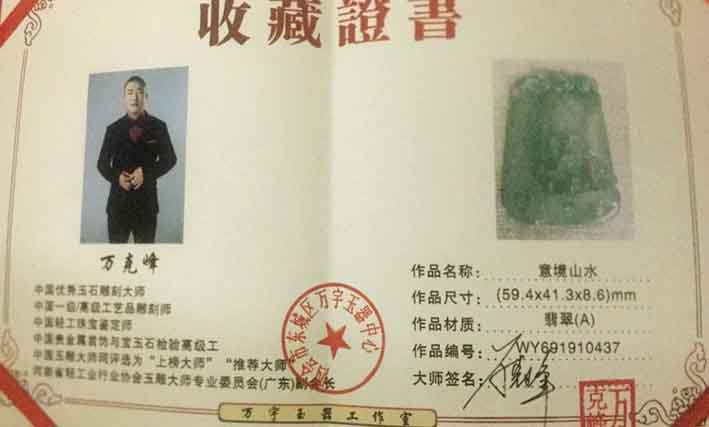 收藏證書
万克峰
中国优秀玉石雕刻大师
中国一级/高级工艺品雕刻师
中国轻工珠宝鉴定师
中国贵金属首饰与宝玉石检验高级工
中国玉雕大师网评选为“上榜大师”“推荐大师
河南省轻工业行业协会玉雕大师专业委员会(广东)副会长
市东城区万字玉器中心
作品名称: 意境山水
作品尺寸: (59.4x41.3x8.6)mm
作品材质: 翡翠(A)
作品编号: WY691910437
大师签名:
万克峰
万字玉器工作室